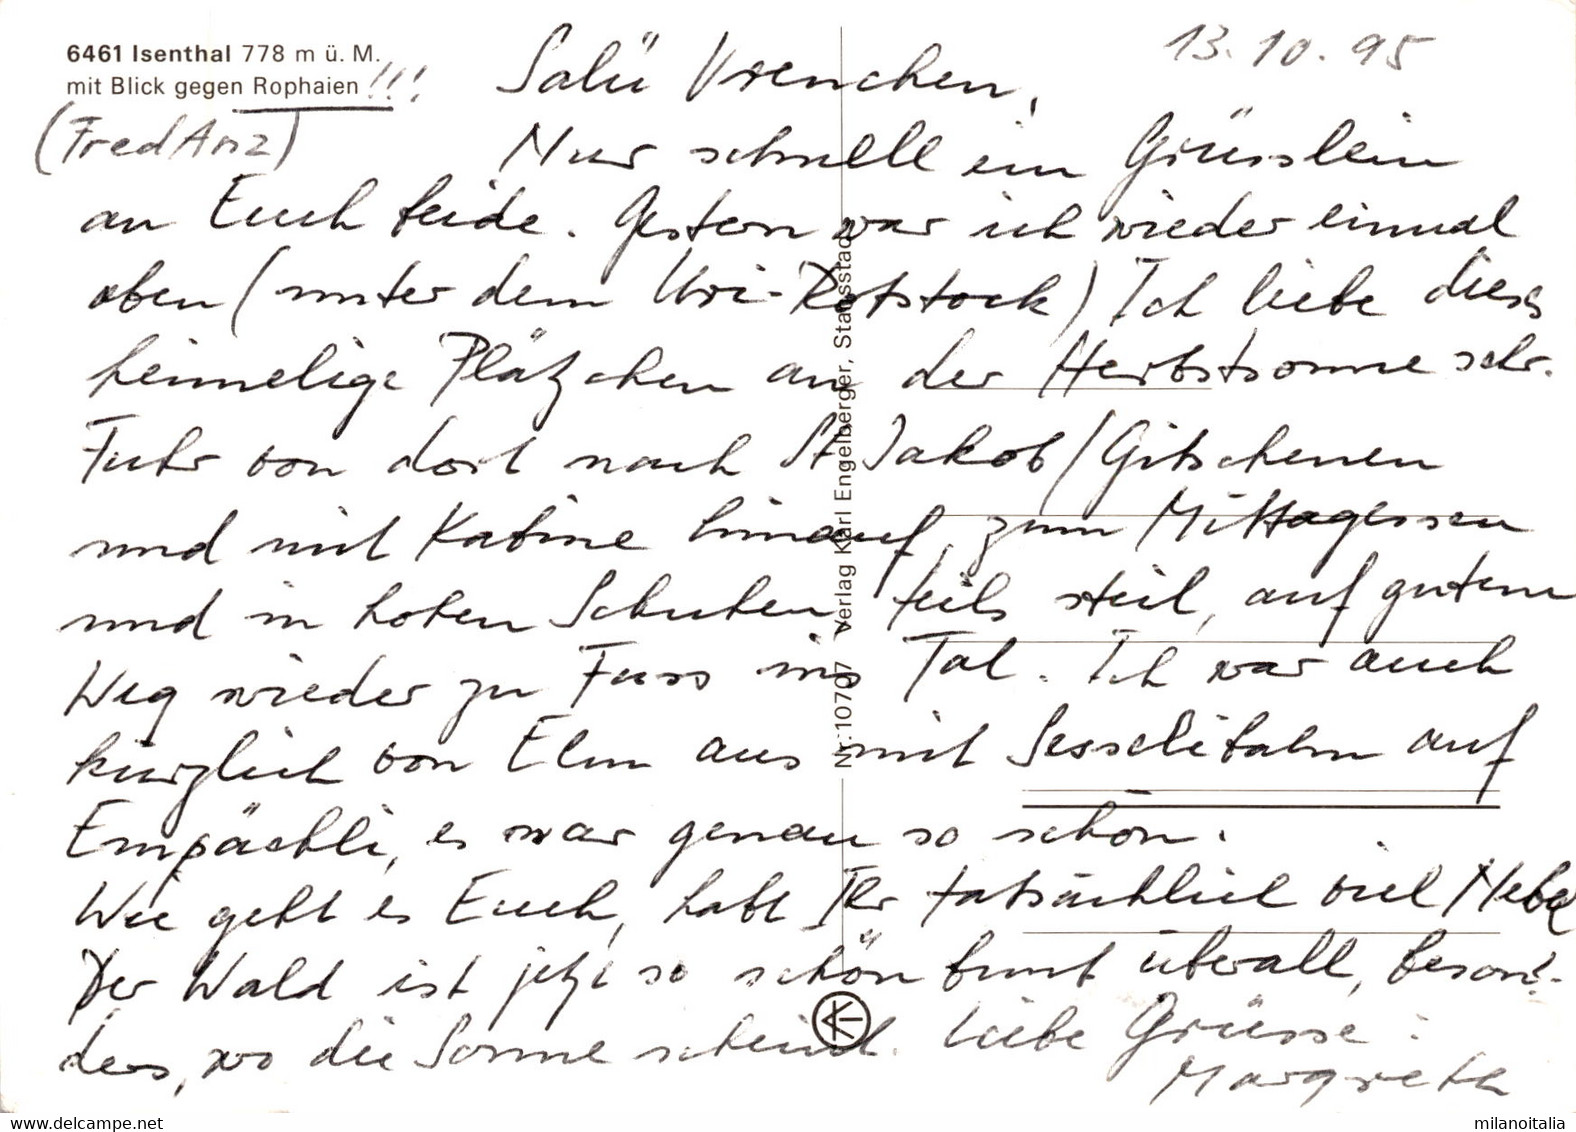 13.10.95
6461 Isenthal 778 m ü. M.
mit Blick gegen Rophaien!!!
(Fred Anz)
Salü Vrenchen,
Nur schnell ein Grüsslein
an Euch beide. Gestern war ich wieder einmal
oben (unter dem Uri-Rotstock) Ich liebe dieses
heimelige Plätzchen an der Herbstsonne sehr.
Fuhr von dort nach St. Jakob/Gitschenen
und mit Kabine hinauf zum Mittagessen
und in hohen Schuhen, teils steil, auf gutem
Weg wieder zu Fuss ins Tal. Ich war auch
kürzlich von Elm aus mit Sesselibahn auf
Empächli, es war genau so schön.
Wie geht es Euch, habt Ihr tatsächlich viel Nebel
Der Wald ist jetzt so schön bunt überall, beson-
ders, wo die Sonne scheint. Liebe Grüsse:
Margreth
Nr. 10707 Verlag Karl Engelberger, Stansstad
delcampe.net
milanoitalia